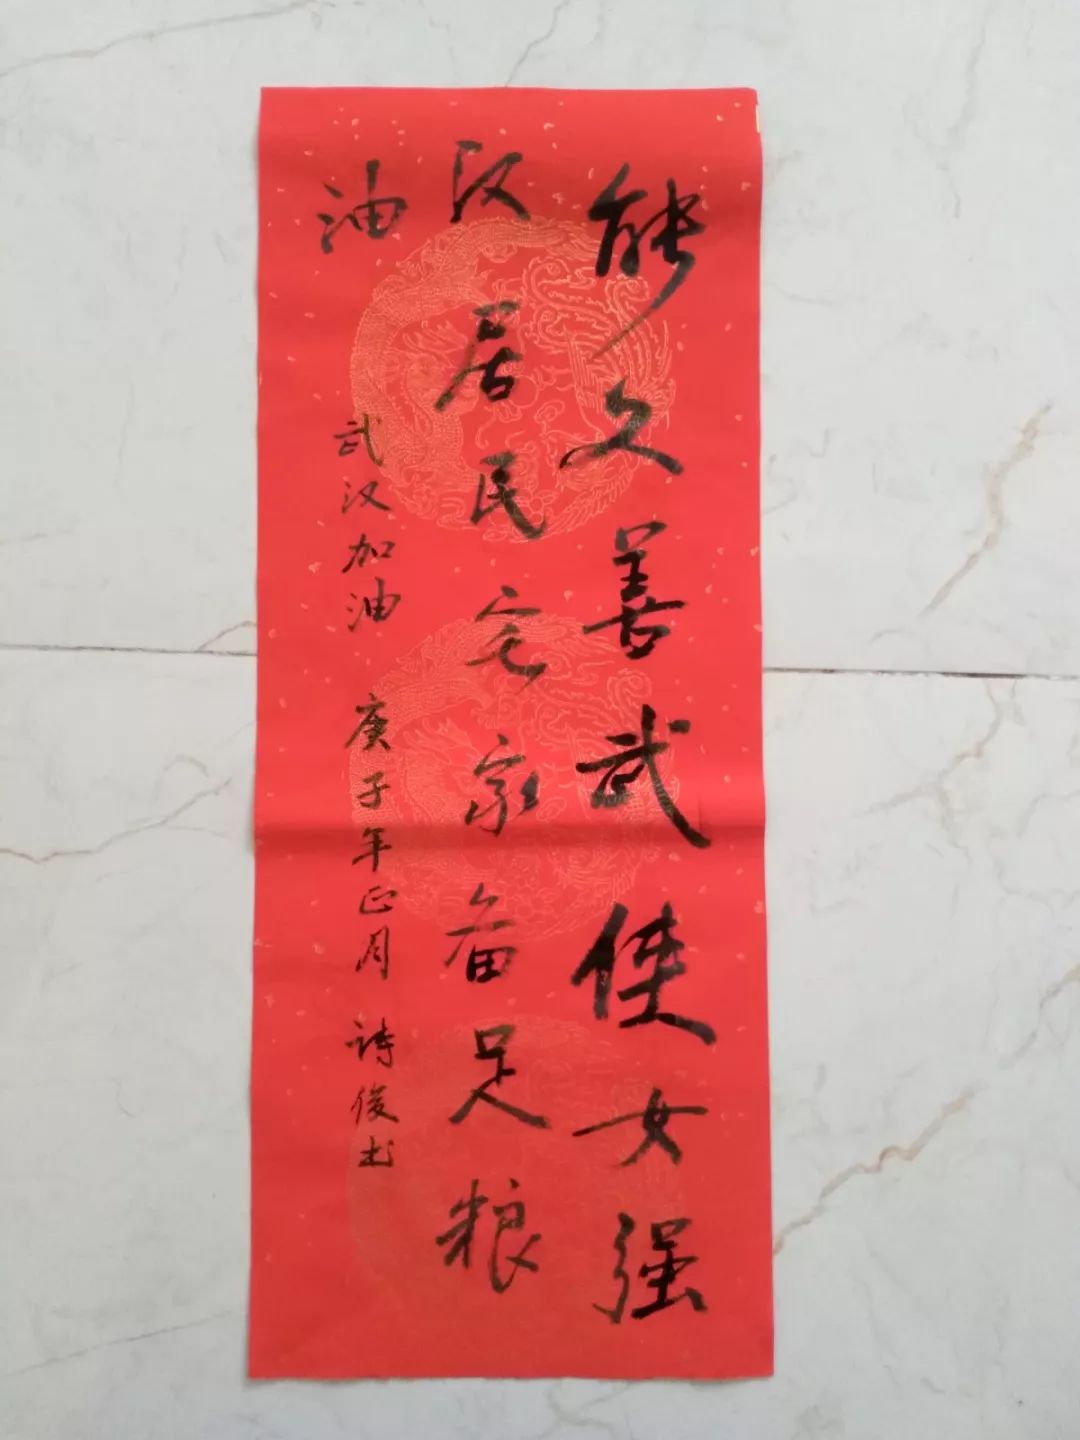 能文善武使女强
汉居民宅家备足粮
油
武汉加油 庚子年正月 詩俊书